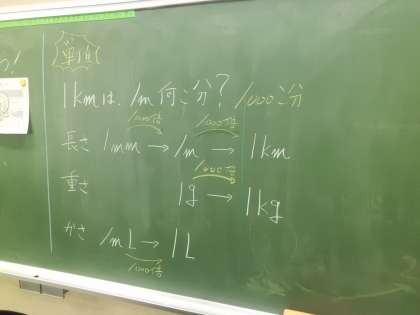 単位
1kmは、1m何こ分? 1000こ分
1000倍 1000倍
長さ 1mm → 1m → 1km
1000倍
重さ 1g → 1kg
かさ 1mL → 1L
1000倍